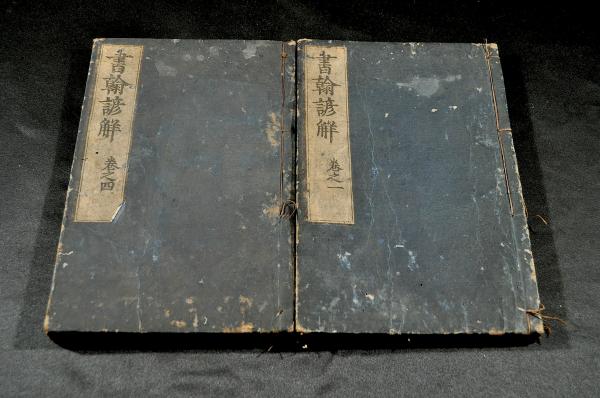 書翰諺解 卷之一
書翰諺解 卷之四